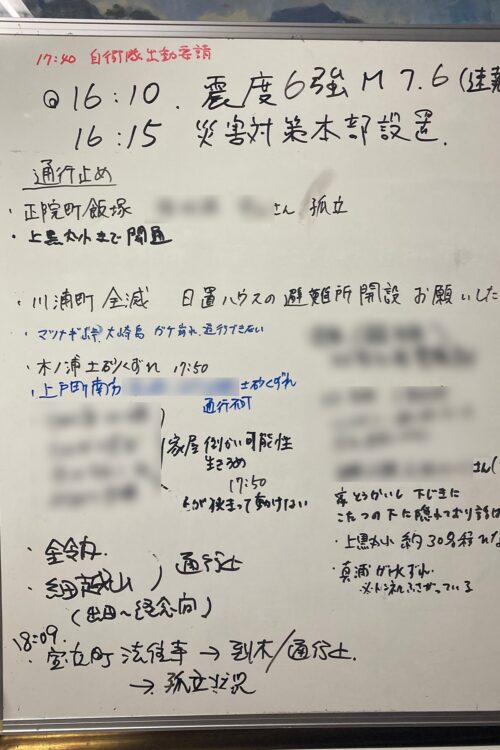 17:40 自衛隊出動要請
@ 16:10. 震度6強 M 7.6 (速報
16:15 災害対策本部設置.
通行止め
・正院町飯塚 さん 孤立
・上黒丸小まで開通
・川浦町 全滅 日置ハウスの避難所開設 お願いした
・マツナギよ 大崎島 がけ崩れ、通行できない
・木ノ浦 土砂くずれ 17:50
・上戸町南方 土砂くずれ
通行不可
家屋倒かい可能性
生きうめ
17:50
が狭まって動けない
さん(
家とうかいし 下じきに
こたつの下に隠れており
・上黒丸小 約30名程
・真浦 がけくずれ
トンネルふさがっている
・
・細 山 ) 通行止
(出田〜経念向)
18:09.
・宝立町 法住寺 → 倒木/通行止.
→ 孤立状況